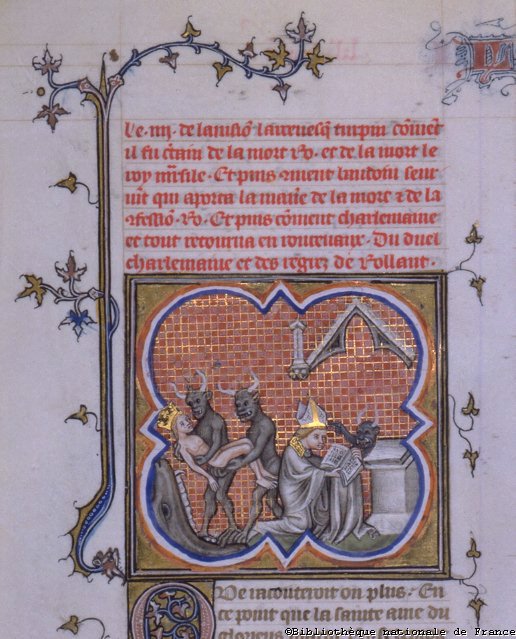 Le .iiij. de lavision larcevesq̃ turpin cõment
il fu c̃tain de la mort Ro. et de la mort le
roy m̃sile. Et puis cõment baudoin seur
vint qui aporta la maniere de la mort ⁊ de la
ꝯfession. Ro. Et puis cõment charlemaine
et tout retourna en roncevaux. Du duel
charlemaine et des regrez de Rollant.
Que racouteroit on plus. En
ce point que la sainte ame du
glorieus
©Bibliothèque nationale de France